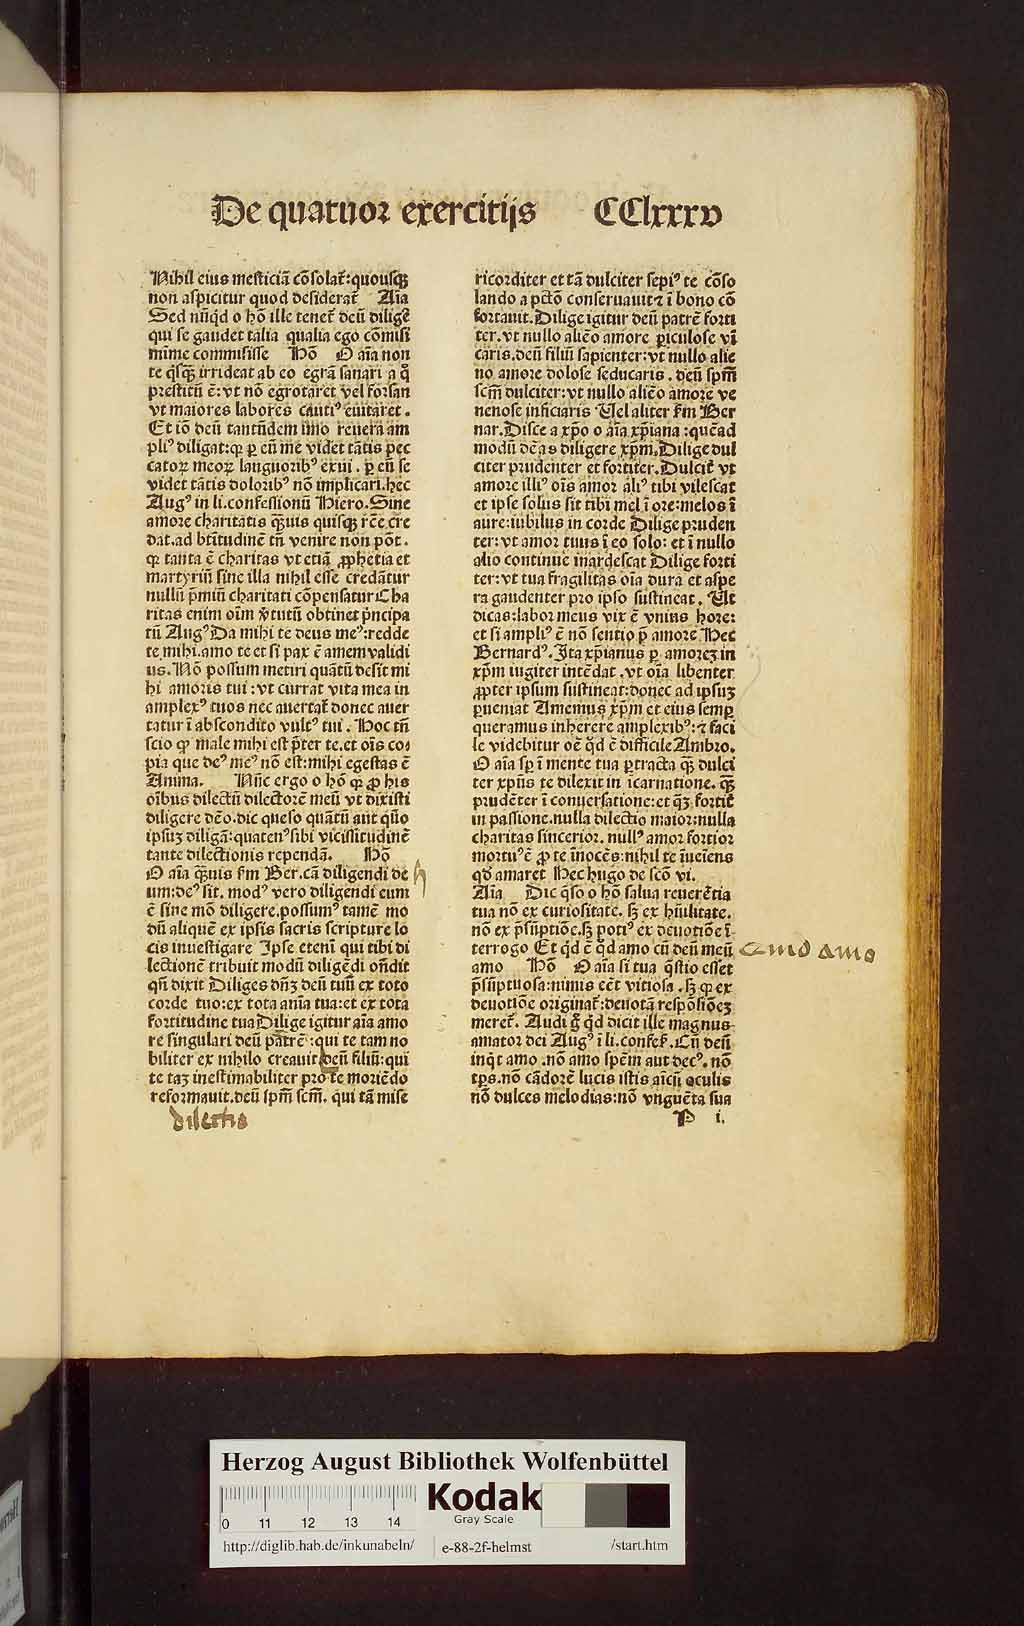 De quatuor exercitijs CClxxxv
Nihil eius mesticiā cōsolat̄: quousqꝫ
non aspicitur quod desiderat̄ Aīa
Sed nūqd o hō ille tenet̄ deū diligē
qui se gaudet talia qualia ego cōmisi
mīme commisisse Hō O aīa non
te qͥsqꝫ irrideat ab eo egrā sanari a qͦ
prestitū ē: vt nō egrotaret vel forsan
vt maiores labores cauti⁹ euitaret.
Et iō deū tantūdem īmo reuera am
pli⁹ diligat: qꝫ ꝑ eū me videt tātis pec
catoꝝ meoꝝ languorib⁹ exui. ꝑ eū se
videt tātis dolorib⁹ nō implicari. hec
Aug⁹ in li. confessionū Hiero. Sine
amore charitatis qͣuis quisqꝫ rēe cre
dat. ad btītudinē tn̄ venire non pōt.
qꝫ tanta ē charitas vt etiā ꝓphetia et
martyriū sine illa nihil esse credātur
nullū p̄miū charitati cōpensatur Cha
ritas enim oīm v̄tutū obtinet pͥncipa
tū Aug⁹ Da mihi te deus me⁹: redde
te mihi. amo te et si pax ē amem validi
us. Nō possum metiri quātū desit mi
hi amoris tui: vt currat vita mea in
amplex⁹ tuos nec auertat̄ donec auer
tatur ī abscondito vult⁹ tui. Hoc tn̄
scio qꝫ male mihi est p̄ter te. et oīs co
pia que de⁹ me⁹ nō est: mihi egestas ē
Anima. Nūc ergo o hō qꝫ ꝓ his
oībus dilectū dilectorē meū vt dixisti
diligere dēo. dic queso quātū aut qūo
ipsuꝫ diligā: quaten⁹ sibi vicissitudinē
tante dilectionis rependā. Hō
O aīa qͣuis ẜm Ber. cā diligendi de
um: de⁹ sit. mod⁹ vero diligendi eum
ē sine mō diligere. possum⁹ tamē mo
dū aliquē ex ipsis sacris scripture lo
cis inuestigare Ipse etenī qui tibi di
lectionē tribuit modū diligēdi on̄dit
qn̄ dixit Diliges dn̄ꝫ deū tuū ex toto
corde tuo: ex tota anīa tua: et ex tota
fortitudine tua Dilige igitur aīa amo
re singulari deū patrē: qui te tam no
biliter ex nihilo creauit deū filiū: qui
te taꝫ inestimabiliter pro te moriēdo
reformauit. deū spm̄ scm̄. qui tā mise
dilectio
ricorditer et tā dulciter sepi⁹ te cōso
lando a pctō conseruauit ⁊ ī bono cō
fortauit. Dilige igitur deū patrē forti
ter. vt nullo aliēo amore ꝑiculose vī
caris. deū filiū sapienter: vt nullo alie
no amore dolose seducaris. deū spm̄
scm̄ dulciter: vt nullo aliēo amore ve
nenose inficiaris Vel aliter ẜm Ber
nar. Disce a xp̄o o aīa xp̄iana: quēad
modū dēas diligere xp̄m. Dilige dul
citer prudenter et fortiter. Dulcit̄ vt
amore illi⁹ oīs amor ali⁹ tibi vilescat
et ipse solus sit tibi mel ī ore: melos ī
aure: iubilus in corde Dilige pruden
ter: vt amor tuus ī eo solo: et ī nullo
alio continue inardescat Dilige forti
ter: vt tua fragilitas oīa dura et aspe
ra gaudenter pro ipso sustineat. Vt
dicas: labor meus vix ē vnius hore:
et si ampli⁹ ē nō sentio p̄ amore Hec
Bernard⁹. Ita xp̄ianus ꝑ amoreꝫ in
xp̄m iugiter intēdat. vt oīa libenter
ꝓpter ipsum sustineat: donec ad ipsuꝫ
ꝑueniat Amemus xp̄m et eius semꝑ
queramus inherere amplexib⁹: ⁊ faci
le videbitur oē qd ē difficile Ambro.
O aīa sp̄ ī mente tua ꝑtracta qͣꝫ dulci
ter xp̄us te dilexit in īcarnatione. qͣꝫ
prudēter ī conuersatione: et qͣꝫ fortit̄
in passione. nulla dilectio maior: nulla
charitas sincerior. null⁹ amor fortior
mortu⁹ ē ꝓ te īnocēs: nihil te īueiens
qd amaret Hec hugo de scō vi.
Aīa Dic qͣso o hō salua reuerētia
tua nō ex curiositate. sꝫ ex hūilitate.
nō ex p̄sūptiōe. sꝫ poti⁹ ex deuotiōe ī
terrogo Et qd ē qd amo cū deū meū
amo Hō O aīa si tua qͣstio esset
p̄sūptuosa: nimis eēt vitiosa. sꝫ qꝫ ex
deuotiōe originat̄: deuotā respōsiōeꝫ
meret̄. Audi gͦ qd dicit ille magnus
amator dei Aug⁹ ī li. confes. Cū deū
inqͥt amo. nō amo spēm aut dec⁹. nō
tp̄s. nō cādorē lucis istis aīcū oculis
nō dulces melodias: nō vnguēta sua
P i.
Quid amo
Herzog August Bibliothek Wolfenbüttel
0 11 12 13 14
Kodak
Gray Scale
http://diglib.hab.de/inkunabeln/ e-88-2f-helmst /start.htm